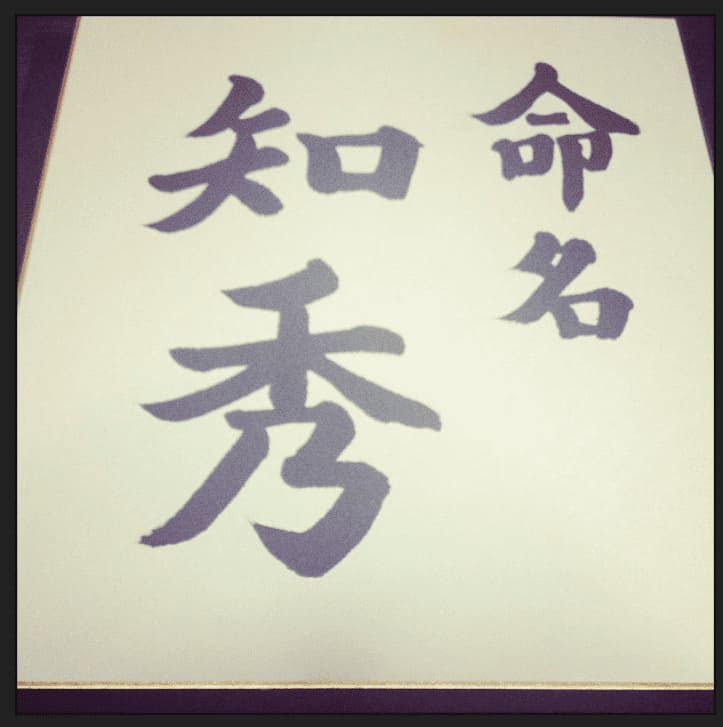 命名
知秀